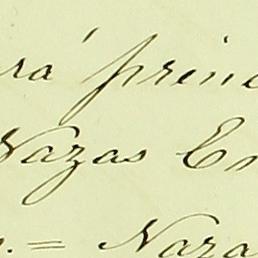 rá princ
Nazas En
. = Naza